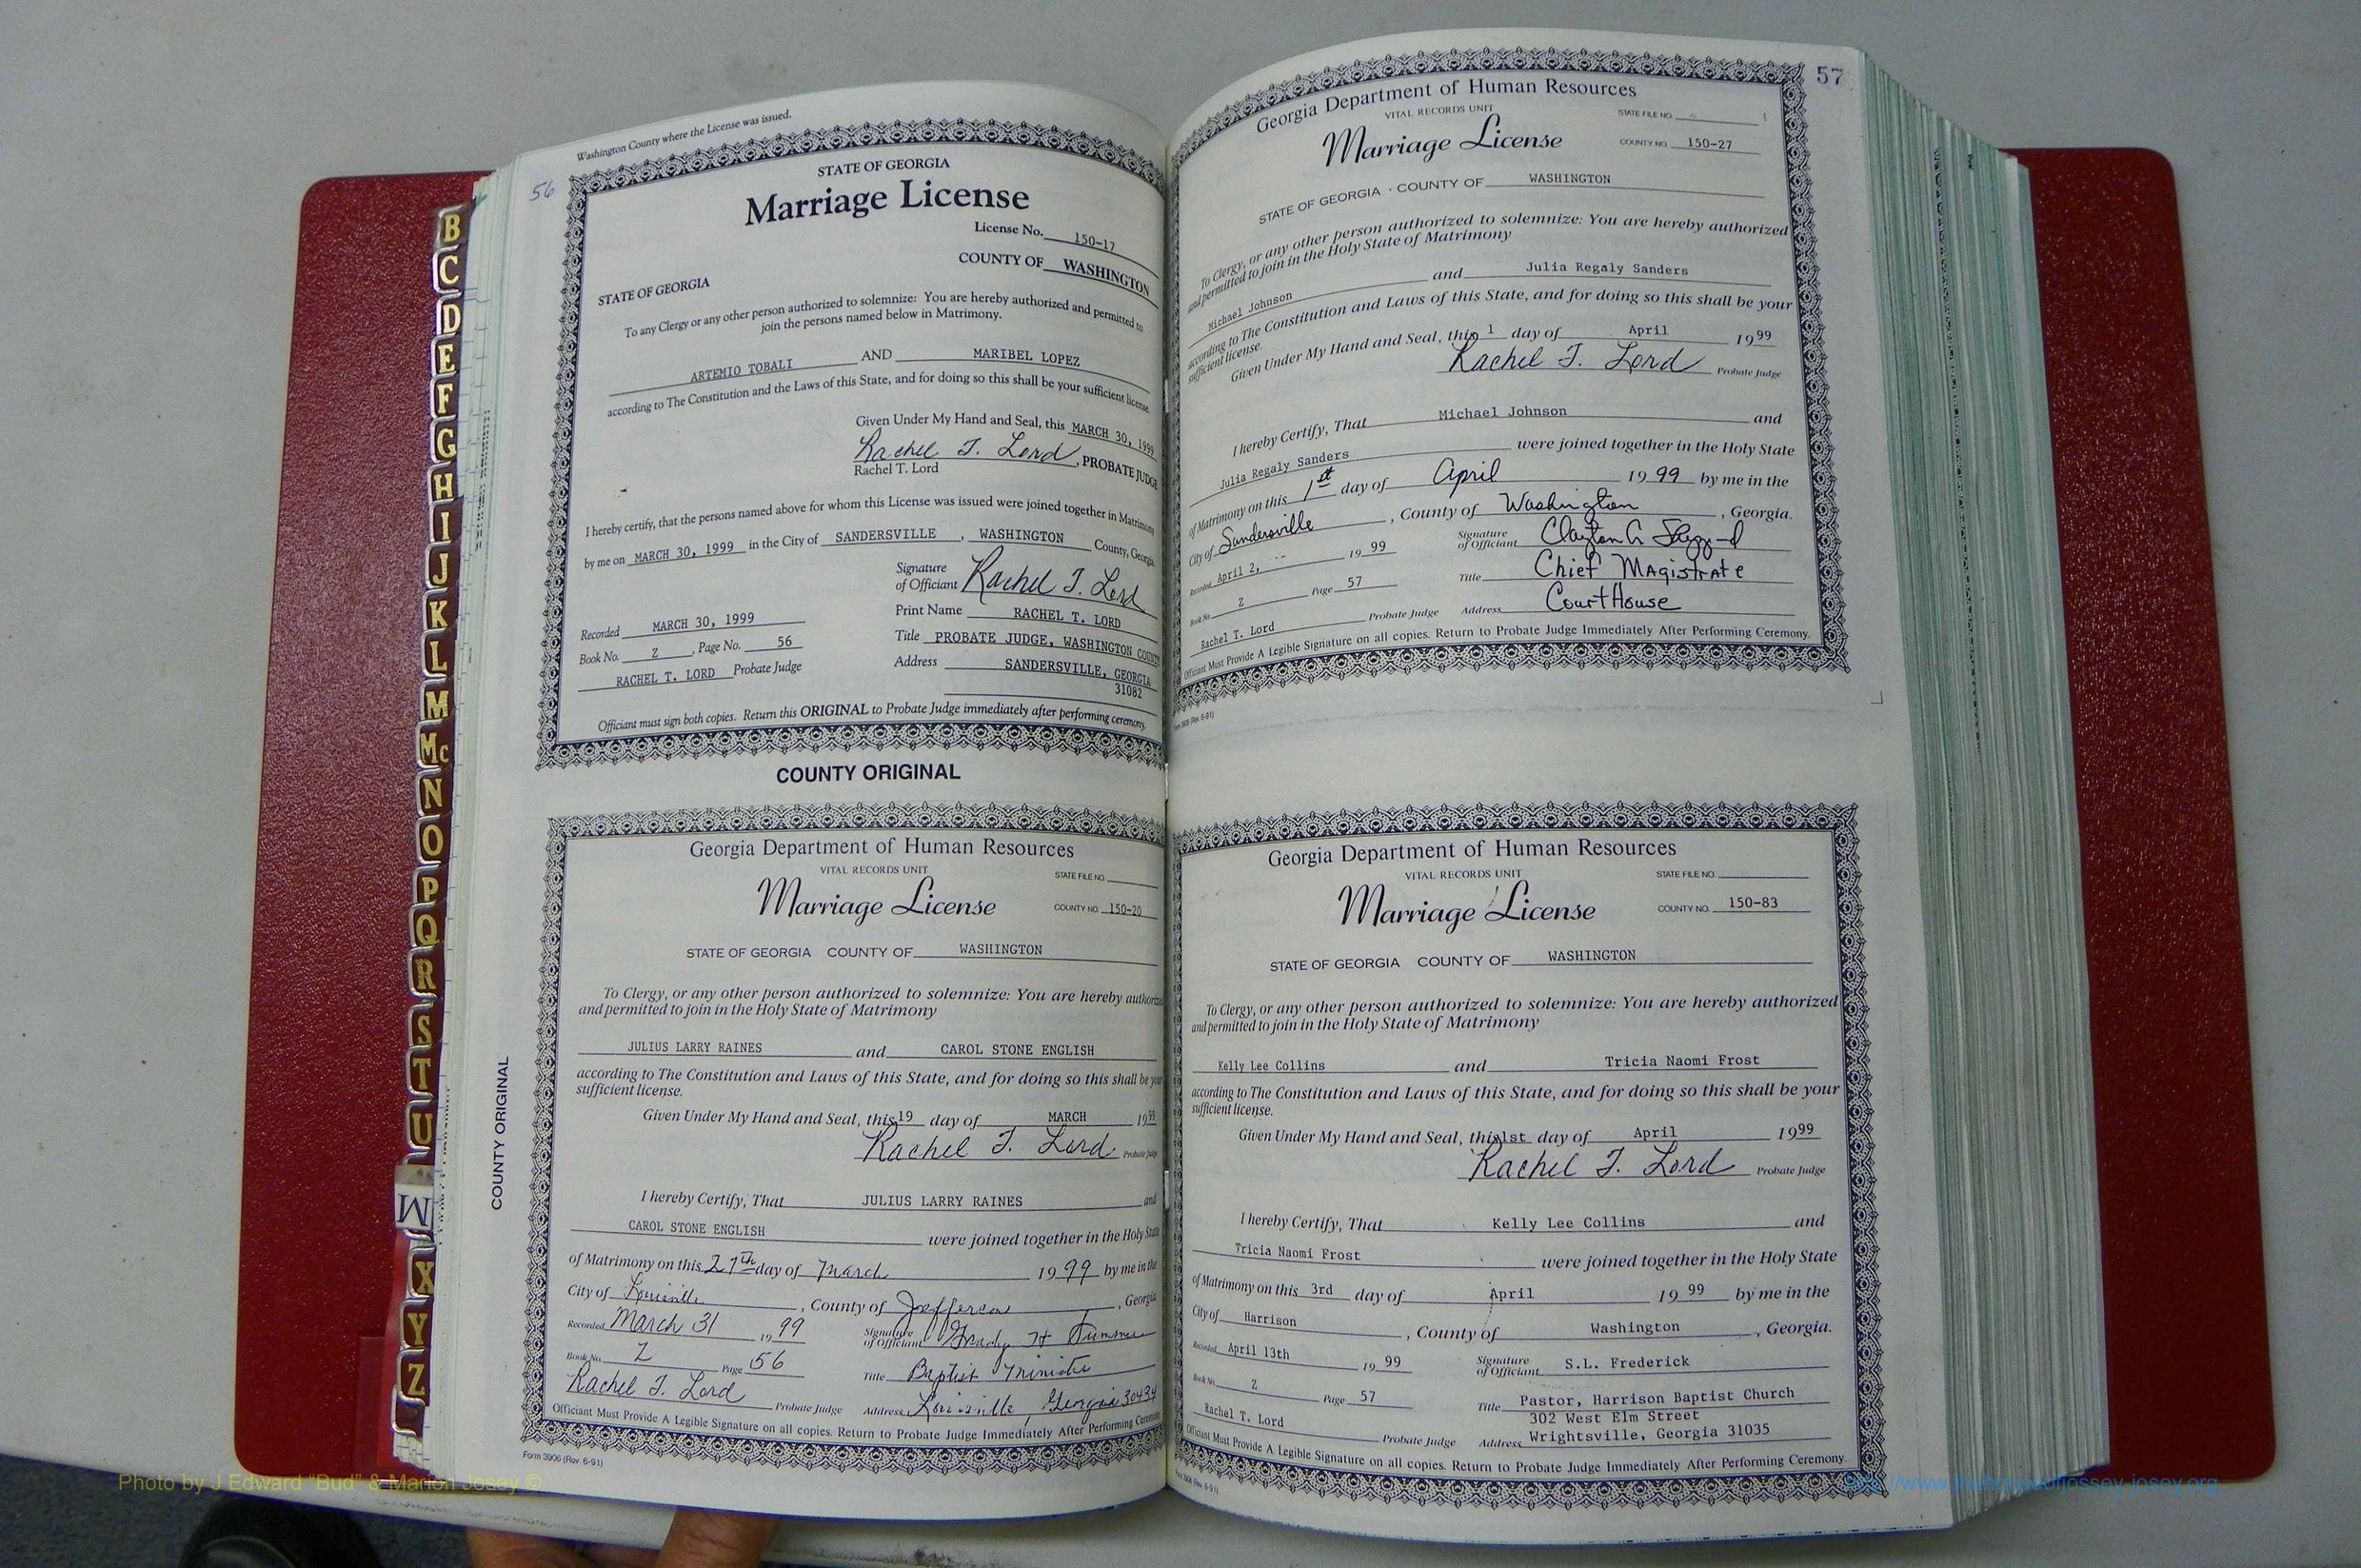 B
C
D
E
F
G
H
I
J
K
L
M
Mc
N
O
P
Q
R
S
T
U
M
X
Y
Z
Washington County where the License was issued.
56
STATE OF GEORGIA
Marriage License
License No. 150-17
COUNTY OF WASHINGTON
STATE OF GEORGIA
To any Clergy or any other person authorized to solemnize: You are hereby authorized and permitted to
join the persons named below in Matrimony.
ARTEMIO TOBALI AND MARIBEL LOPEZ
according to The Constitution and the Laws of this State, and for doing so this shall be your sufficient license.
Given Under My Hand and Seal, this MARCH 30, 1999
Rachel T. Lord, PROBATE JUDGE
Rachel T. Lord
I hereby certify, that the persons named above for whom this License was issued were joined together in Matrimony
by me on MARCH 30, 1999 in the City of SANDERSVILLE, WASHINGTON County, Georgia.
Signature
of Officiant Rachel T. Lord
Print Name RACHEL T. LORD
Recorded MARCH 30, 1999
Title PROBATE JUDGE, WASHINGTON COUNTY
Book No. Z, Page No. 56
Address SANDERSVILLE, GEORGIA
RACHEL T. LORD Probate Judge
31082
Officiant must sign both copies. Return this ORIGINAL to Probate Judge immediately after performing ceremony.
COUNTY ORIGINAL
COUNTY ORIGINAL
Georgia Department of Human Resources
VITAL RECORDS UNIT
STATE FILE NO.
Marriage License
COUNTY NO. 150-20
STATE OF GEORGIA COUNTY OF WASHINGTON
To Clergy, or any other person authorized to solemnize: You are hereby authorized
and permitted to join in the Holy State of Matrimony
JULIUS LARRY RAINES and CAROL STONE ENGLISH
according to The Constitution and Laws of this State, and for doing so this shall be your
sufficient license.
Given Under My Hand and Seal, this 19 day of MARCH 1999
Rachel T. Lord Probate Judge
I hereby Certify, That JULIUS LARRY RAINES and
CAROL STONE ENGLISH were joined together in the Holy State
of Matrimony on this 27th day of March 1999 by me in the
City of Louisville, County of Jefferson, Georgia
Recorded March 31 1999
Signature
of Officiant Grady H
Book No. Z Page 56
Title Baptist Minister
Rachel T. Lord Probate Judge
Address Louisville, Georgia 30434
Officiant Must Provide A Legible Signature on all copies. Return to Probate Judge Immediately After Performing Ceremony.
Form 3906 (Rev. 6-91)
57
Georgia Department of Human Resources
VITAL RECORDS UNIT
STATE FILE NO.
Marriage License
COUNTY NO. 150-27
STATE OF GEORGIA · COUNTY OF WASHINGTON
To Clergy, or any other person authorized to solemnize: You are hereby authorized
and permitted to join in the Holy State of Matrimony
Michael Johnson and Julia Regaly Sanders
according to The Constitution and Laws of this State, and for doing so this shall be your
sufficient license.
Given Under My Hand and Seal, this 1 day of April 1999
Rachel T. Lord Probate Judge
I hereby Certify, That Michael Johnson and
Julia Regaly Sanders were joined together in the Holy State
of Matrimony on this 1st day of April 1999 by me in the
City of Sandersville, County of Washington, Georgia.
Recorded April 2, 1999
Signature
of Officiant Clayton A
Book No. Z Page 57
Title Chief Magistrate
Rachel T. Lord Probate Judge
Address CourtHouse
Officiant Must Provide A Legible Signature on all copies. Return to Probate Judge Immediately After Performing Ceremony.
Form 3906 (Rev. 6-91)
Georgia Department of Human Resources
VITAL RECORDS UNIT
STATE FILE NO.
Marriage License
COUNTY NO. 150-83
STATE OF GEORGIA COUNTY OF WASHINGTON
To Clergy, or any other person authorized to solemnize: You are hereby authorized
and permitted to join in the Holy State of Matrimony
Kelly Lee Collins and Tricia Naomi Frost
according to The Constitution and Laws of this State, and for doing so this shall be your
sufficient license.
Given Under My Hand and Seal, this 1st day of April 1999
Rachel T. Lord Probate Judge
I hereby Certify, That Kelly Lee Collins and
Tricia Naomi Frost were joined together in the Holy State
of Matrimony on this 3rd day of April 1999 by me in the
City of Harrison, County of Washington, Georgia.
Recorded April 13th 1999
Signature
of Officiant S.L. Frederick
Book No. Z Page 57
Title Pastor, Harrison Baptist Church
302 West Elm Street
Rachel T. Lord Probate Judge
Address Wrightsville, Georgia 31035
Officiant Must Provide A Legible Signature on all copies. Return to Probate Judge Immediately After Performing Ceremony.
Form 3906 (Rev. 6-91)
Photo by J Edward "Bud" & Marion Josey ©
http://www.thehouseofjossey-josey.org